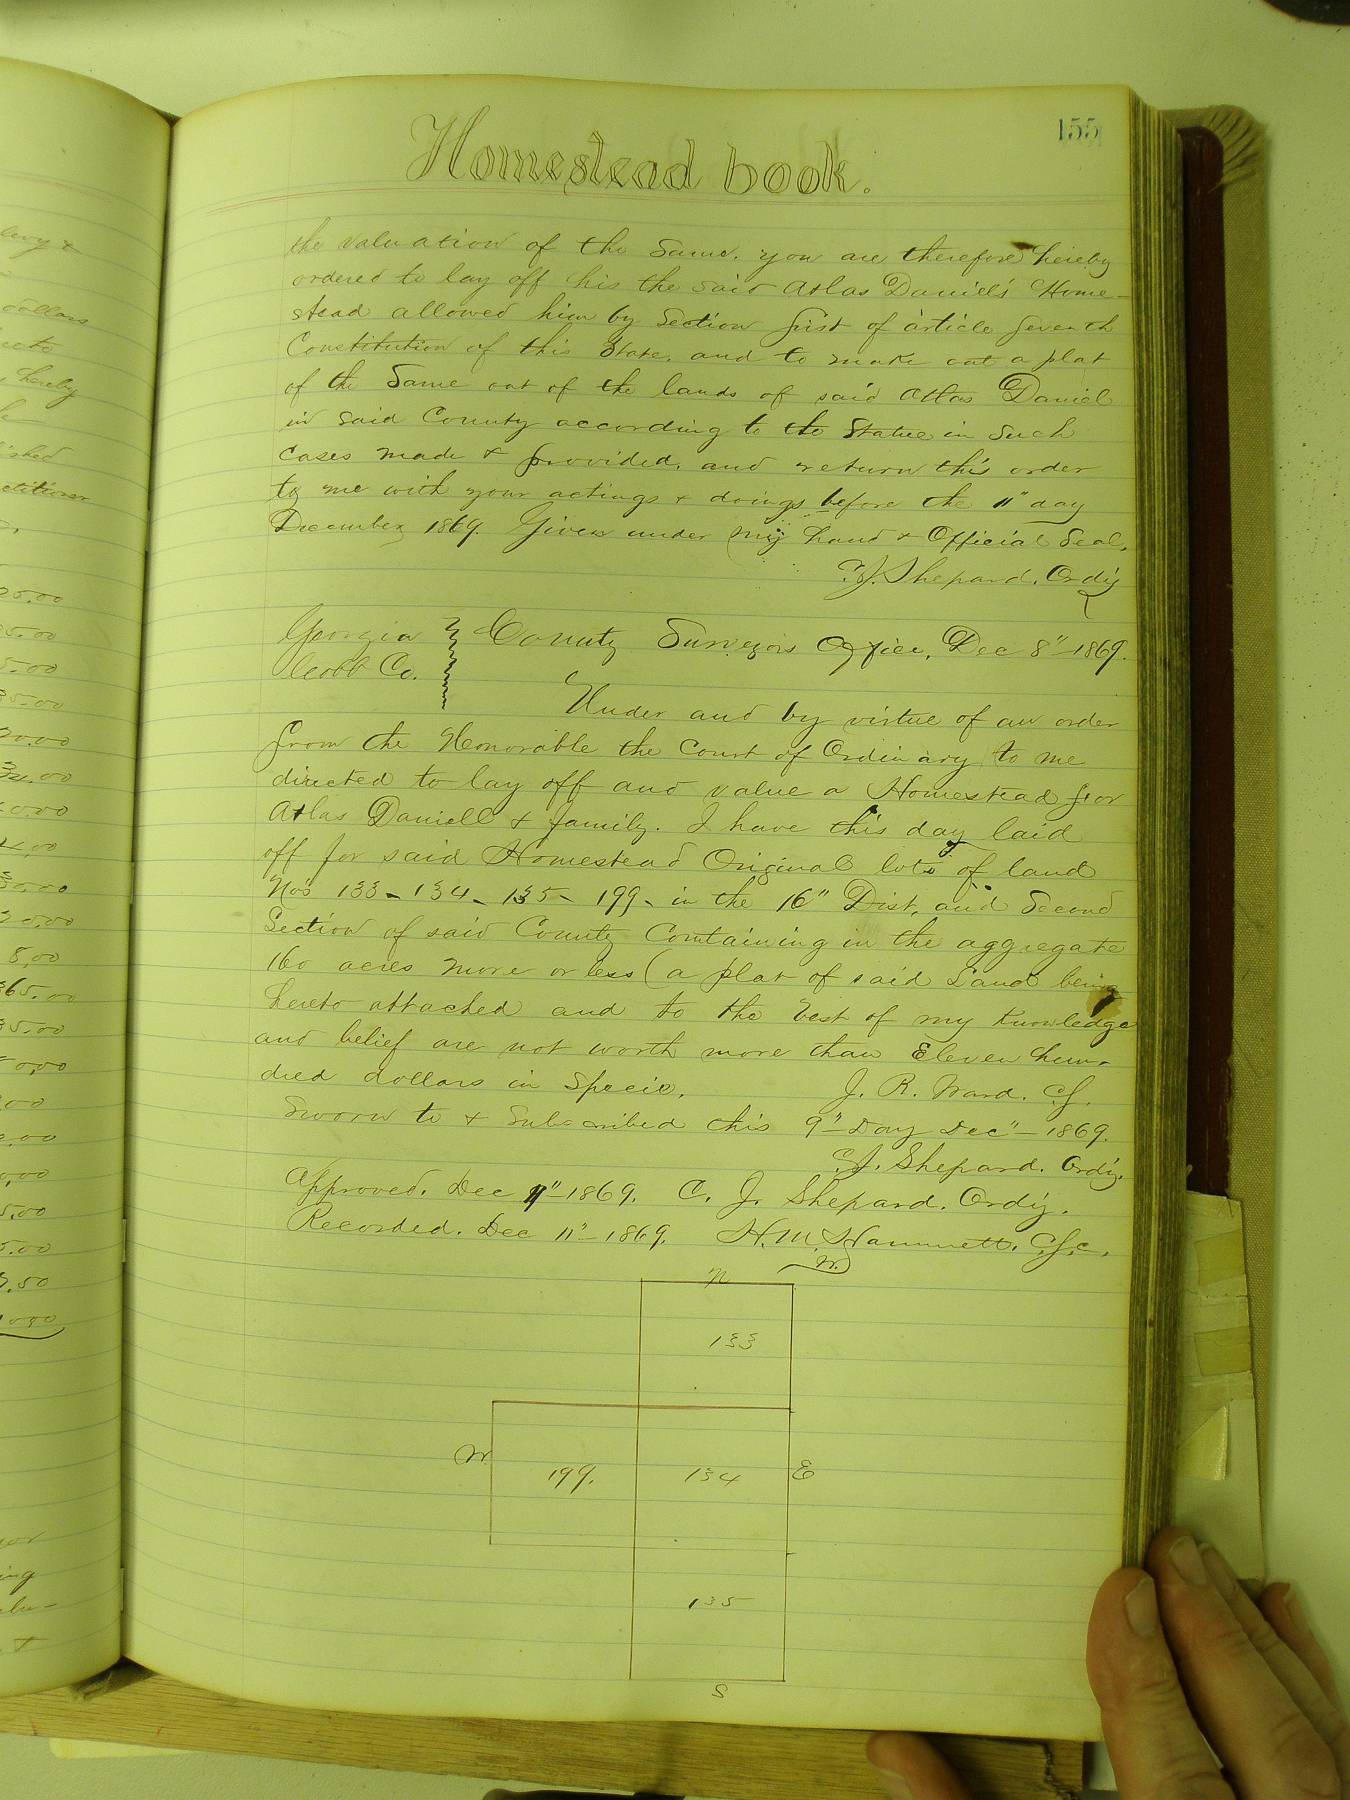 155
Homestead book.
the valuation of the Same. you are therefore hereby
ordered to lay off his the said Atlas Daniels Home-
stead allowed him by Section first of article Seventh
Constitution of this State, and to make out a plat
of the Same out of the lands of said Atlas Daniel
in said County according to the Statue in Such
Cases made & provided, and return this order
to me with your actings & doings before the 11" day
December 1869. Given under my hand & Official Seal,
C. J. Shepard. Ordy
Georgia County Surveyors Office, Dec 8"-1869.
Cobb Co.
Under and by virtue of an order
from the Honorable the Court of Ordinary to me
directed to lay off and value a Homestead for
Atlas Daniell & family. I have this day laid
off for said Homestead Original lots of land
Nos 133- 134- 135- 199- in the 16" Dist, and Second
Section of said County Containing in the aggregate
160 acres more or less (a plat of said Land being
hereto attached and to the best of my knowledge
and belief are not worth more than Eleven hun-
dred dollars in Specie.  J. R. Ward. C.S.
Sworn to & Subscribed this 9"-Day Dec"-1869.
C. J. Shepard. Ordy.
Approved. Dec 9"-1869. C. J. Shepard. Ordy.
Recorded. Dec 11"-1869. H. M. Hammett. C.S.C.
N
133
W
199.
134
E
135
S
levy &
dollars
hereby
25.00
5.00
35.00
20.00
30.00
8.00
365.00
35.00
5.00